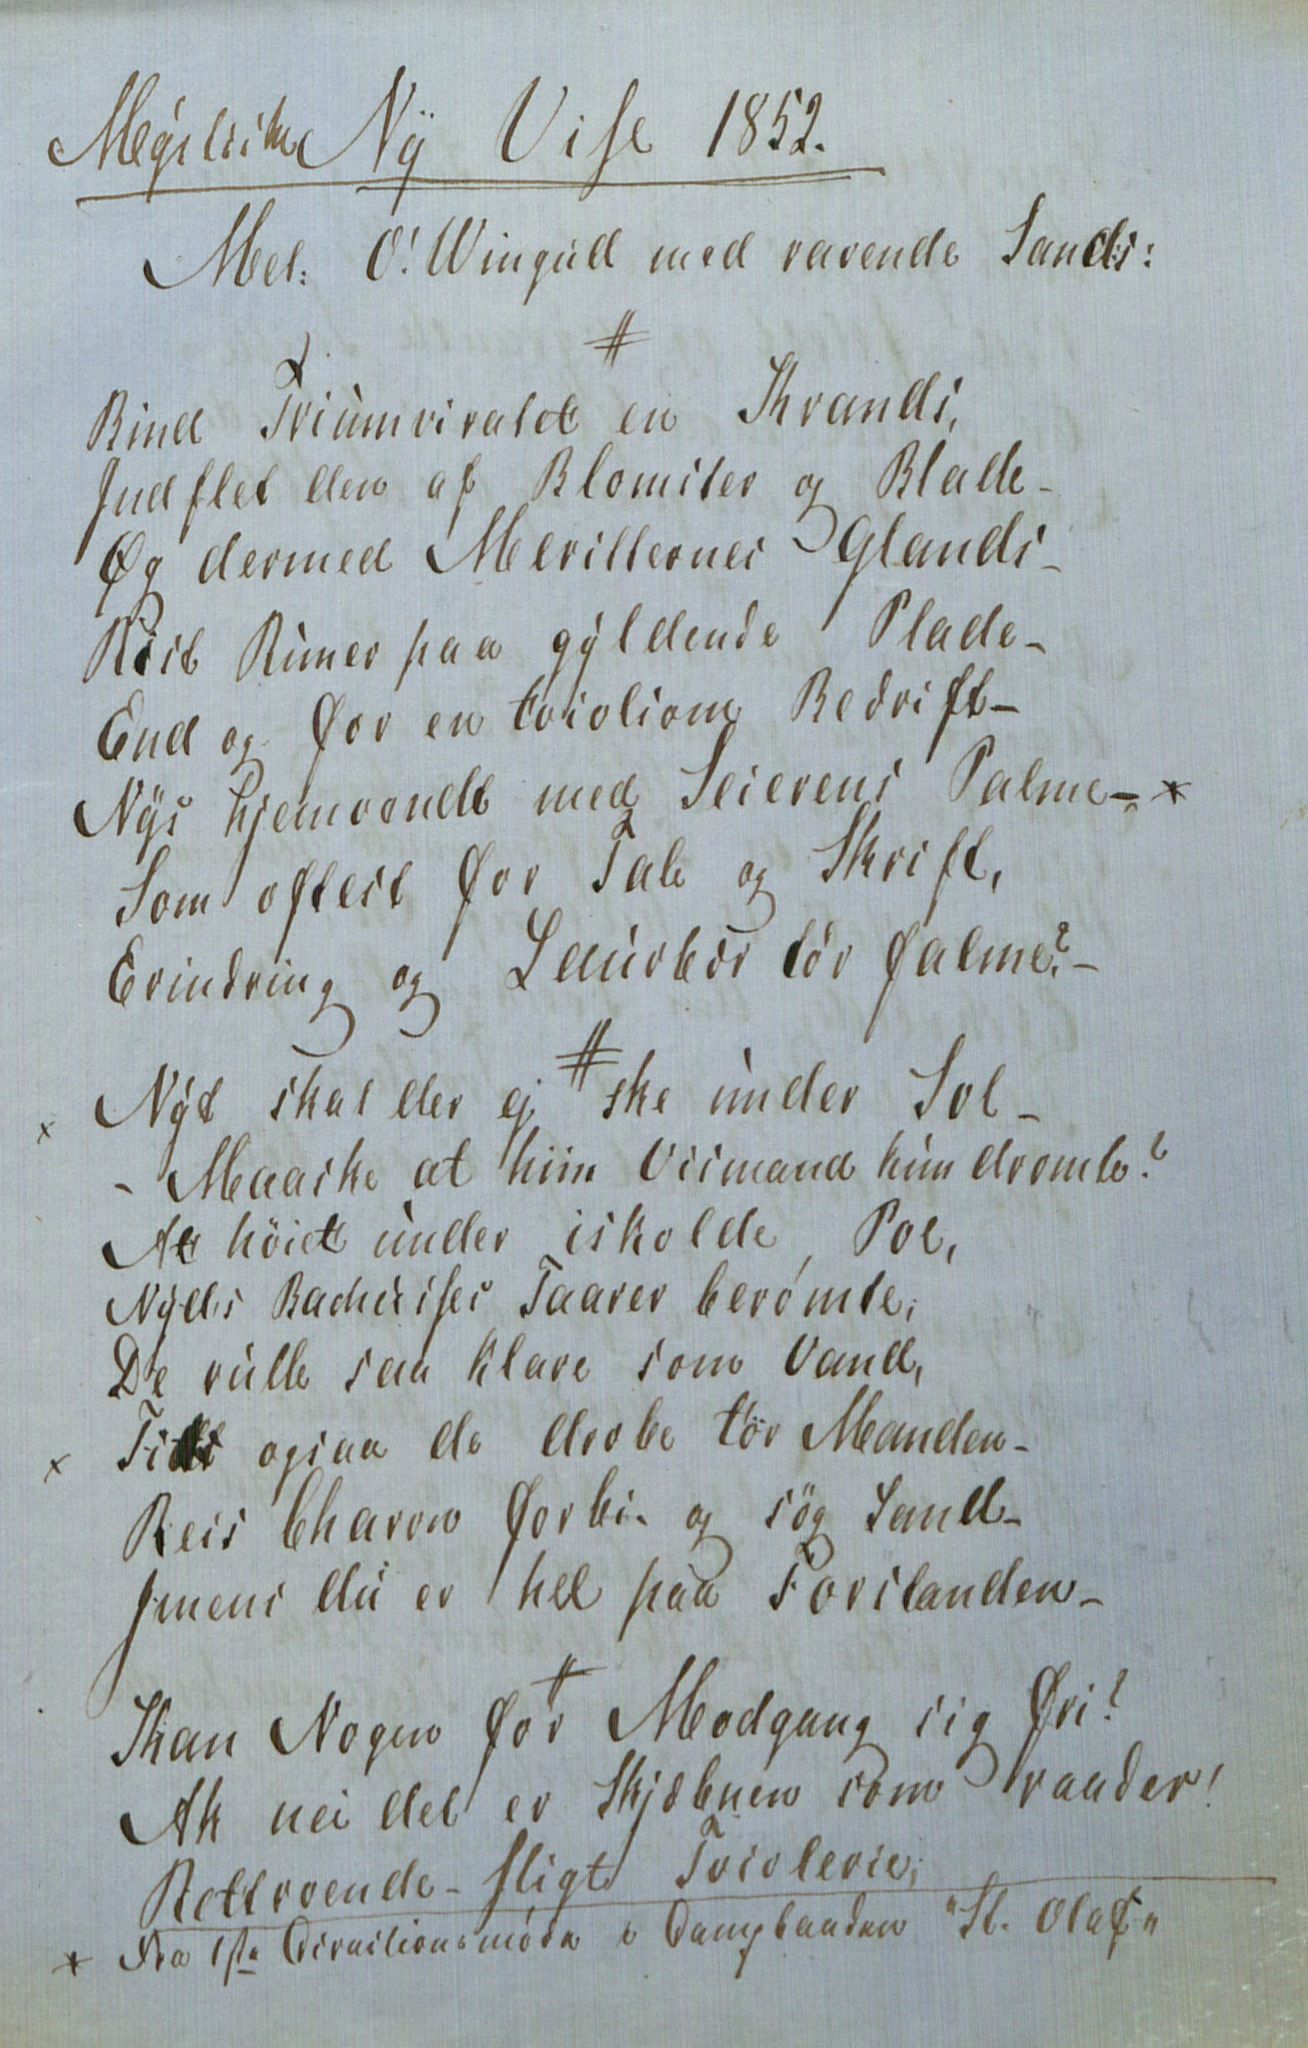 Megetsite Ny Vise 1852.
Mel: O! Wingud med ravende Sands:
#
Bind Triumviratet en Krands,
Indflet den af Blomster og Blade -
Og dermed Meritternes Glands -
Rist Runer paa gyldende Plade -
End og for en Bedrift -
Nys hjemvendt med Seierens Palme - *
Som oftest for Tale og Skrift,
Erindring og Laurbær tør falme? -
#
x Nyt skal der ej ske under Sol -
- Maaske at hiin Viismand kun drømte?
At høiet under iskolde Pol,
Nydes Bachusses Taarer berømte;
De rulle saa klare som Vand,
x Tidt ogsaa de dræbe tør Manden -
Reis Charon forbi - og søg Land -
Imens du er hel paa Forstanden -
#
Kan Nogen for Modgang sig fri?
Ak nei det er Skjæbnen som raader!
Rettroende - sligt Frivlerie;
* Fra 1ste Direktionsmøde i Dampbaaden "St. Olaf"